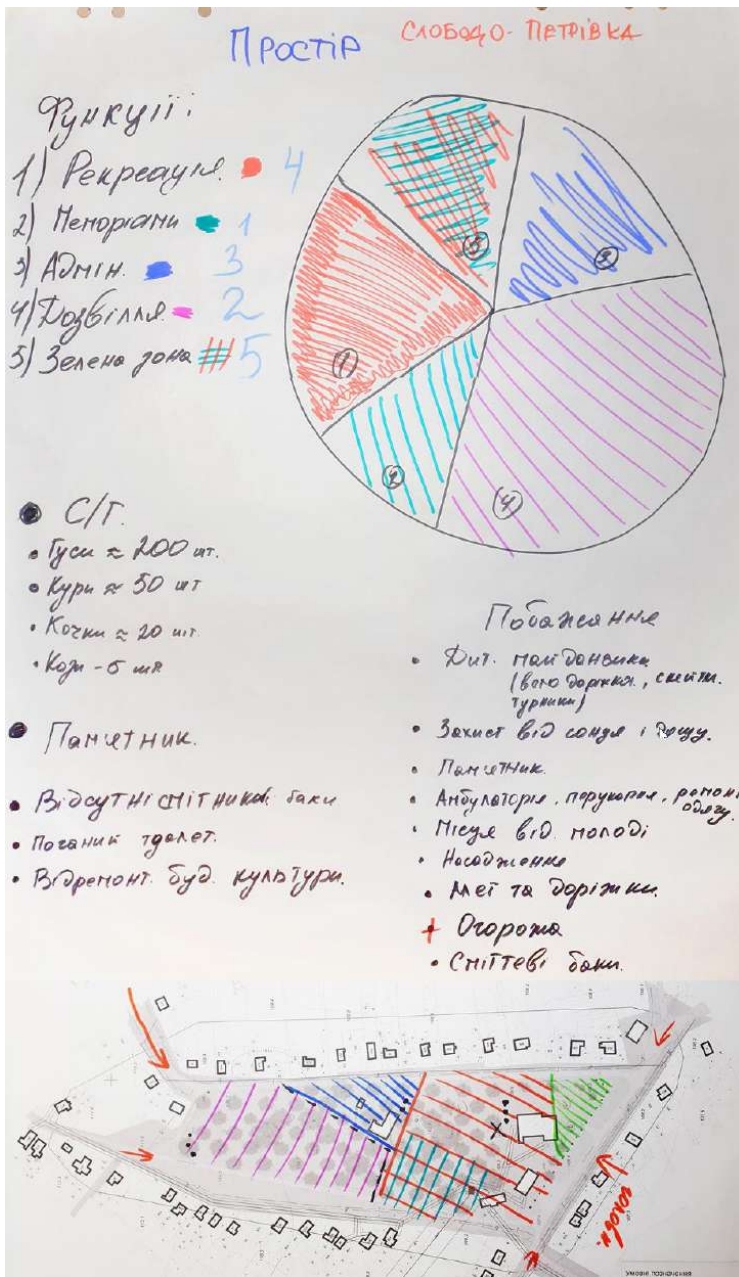 Простір
СЛОБОДО-ПЕТРІВКА
Функції:
1) Рекреація 4
2) Меморіали 1
3) Адмін. 3
4) Дозвілля 2
5) Зелена зона 5
5
3
1
2
4
С/Г.
• Гуси ≈ 200 шт.
• Кури ≈ 50 шт
• Качки ≈ 20 шт.
• Кози - 5 шт
Пам'ятник.
• Відсутні смітники баки
• Поганий туалет.
• Відремонт. буд. культури.
Побажання
• Дит. майданчика
(вело доріжка,
турники)
• Захист від сонця і дощу.
• Пам'ятник.
• Амбулаторія, перукарня, ремонт
одягу.
• Місця від. молоді
• Насадження
• Алеї та доріжки.
+ Огорожа
• Сміттєві баки.